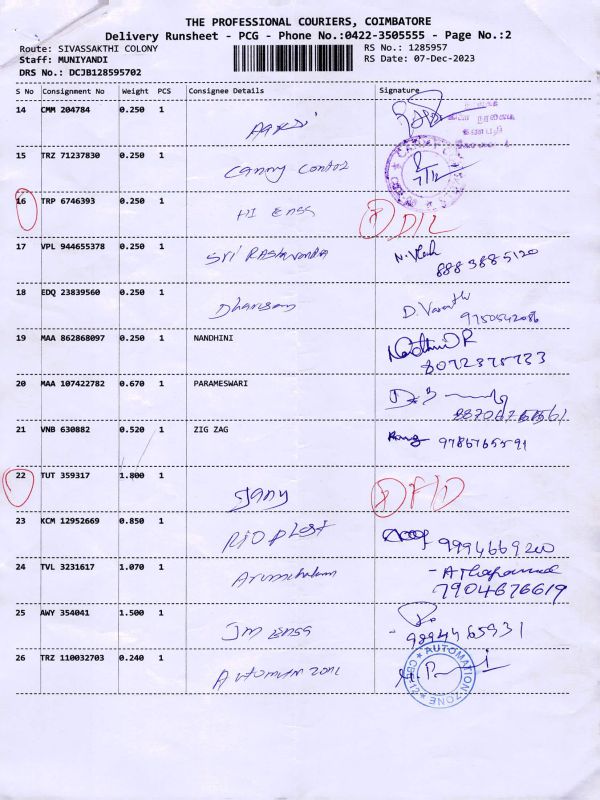 THE PROFESSIONAL COURIERS, COIMBATORE
Delivery Runsheet - PCG - Phone No.:0422-3505555 - Page No.:2
Route: SIVASSAKTHI COLONY RS No.: 1285957
Staff: MUNIYANDI RS Date: 07-Dec-2023
DRS No.: DCJB128595702
S No Consignment No Weight PCS Consignee Details Signature
14 CMM 204784 0.250 1
15 TRZ 71237830 0.250 1 Canny Control
7/12
16 TRP 6746393 0.250 1 HI ENGG D/L
17 VPL 944655378 0.250 1 Sri Raghavendra
8883885120
18 EDQ 23839560 0.250 1 D. Vasanth
9750542086
19 MAA 862868097 0.250 1 NANDHINI Nandhini R
8072375733
20 MAA 107422782 0.670 1 PARAMESWARI
21 VNB 630882 0.520 1 ZIG ZAG 9786765591
22 TUT 359317 1.800 1 Stany
23 KCM 12952669 0.850 1 RIO Plast
9994669200
24 TVL 3231617 1.070 1
7904676619
25 AWY 354041 1.500 1 JM ENGG
9894465931
26 TRZ 110032703 0.240 1 Automation Zone
AUTOMATION ZONE CBE-12